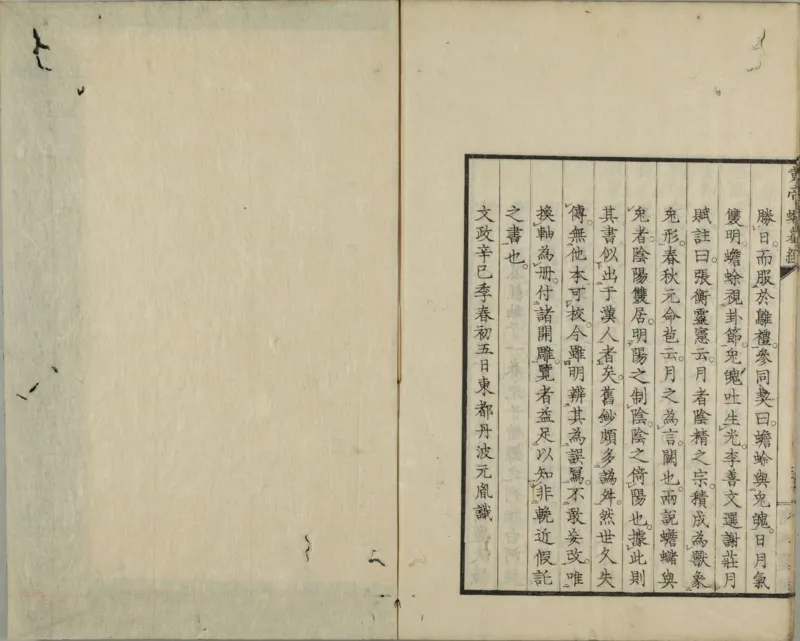 黄帝蝦蟇經
勝日而服於離禮參同契曰蟾蜍與兎魄日月氣
雙明蟾蜍視卦節兎魄吐生光李善文選謝莊月
賦註曰張衡靈憲云月者陰精之宗積成為獸象
兎形春秋元命苞云月之為言闕也兩說蟾蠩與
兎者陰陽雙居明陽之制陰陰之倚陽也據此則
其書似出于漢人者矣舊鈔頗多譌舛然世久失
傳無他本可挍今雖明辨其為誤寫不敢妄改唯
換軸為冊付諸開雕覽者益足以知非輓近假託
之書也
文政辛巳季春初五日東都丹波元胤識